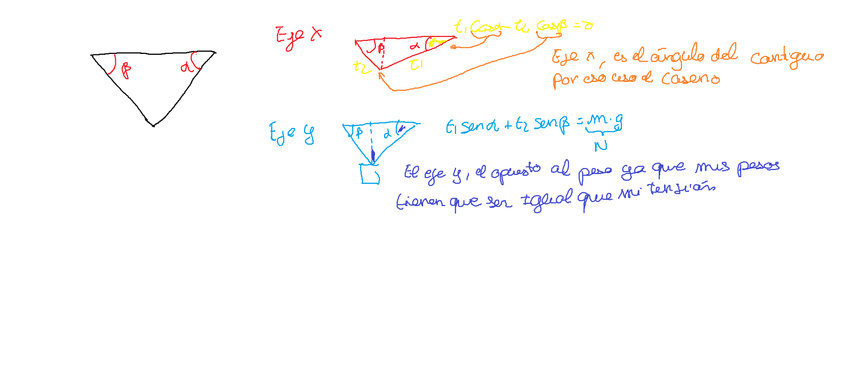 Eje x
t₁ cosα - t₂ cosβ = 0
β
α
t₂
t₁
Eje x, es el ángulo del contiguo
por eso uso el coseno
β
α
Eje y
β
α
t₁ senα + t₂ senβ = m·g
N
El eje y, el opuesto al peso ya que mis pesos
tienen que ser igual que mi tensión